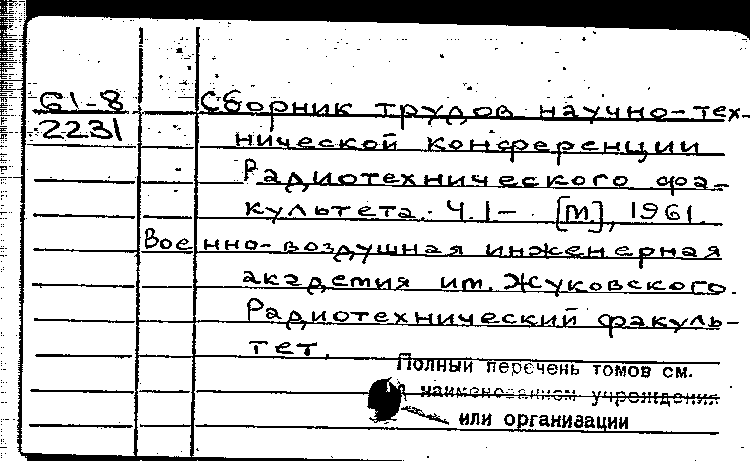 61-8 Сборник трудов научно-тех-
2231 нической конференции
Радиотехнического фа-
культета. Ч. 1 – [М.], 1961.
Военно-воздушная инженерная
академия им. Жуковского.
Радиотехнический факуль-
тет.
Полный перечень томов см.
наименованном учреждения
или организации